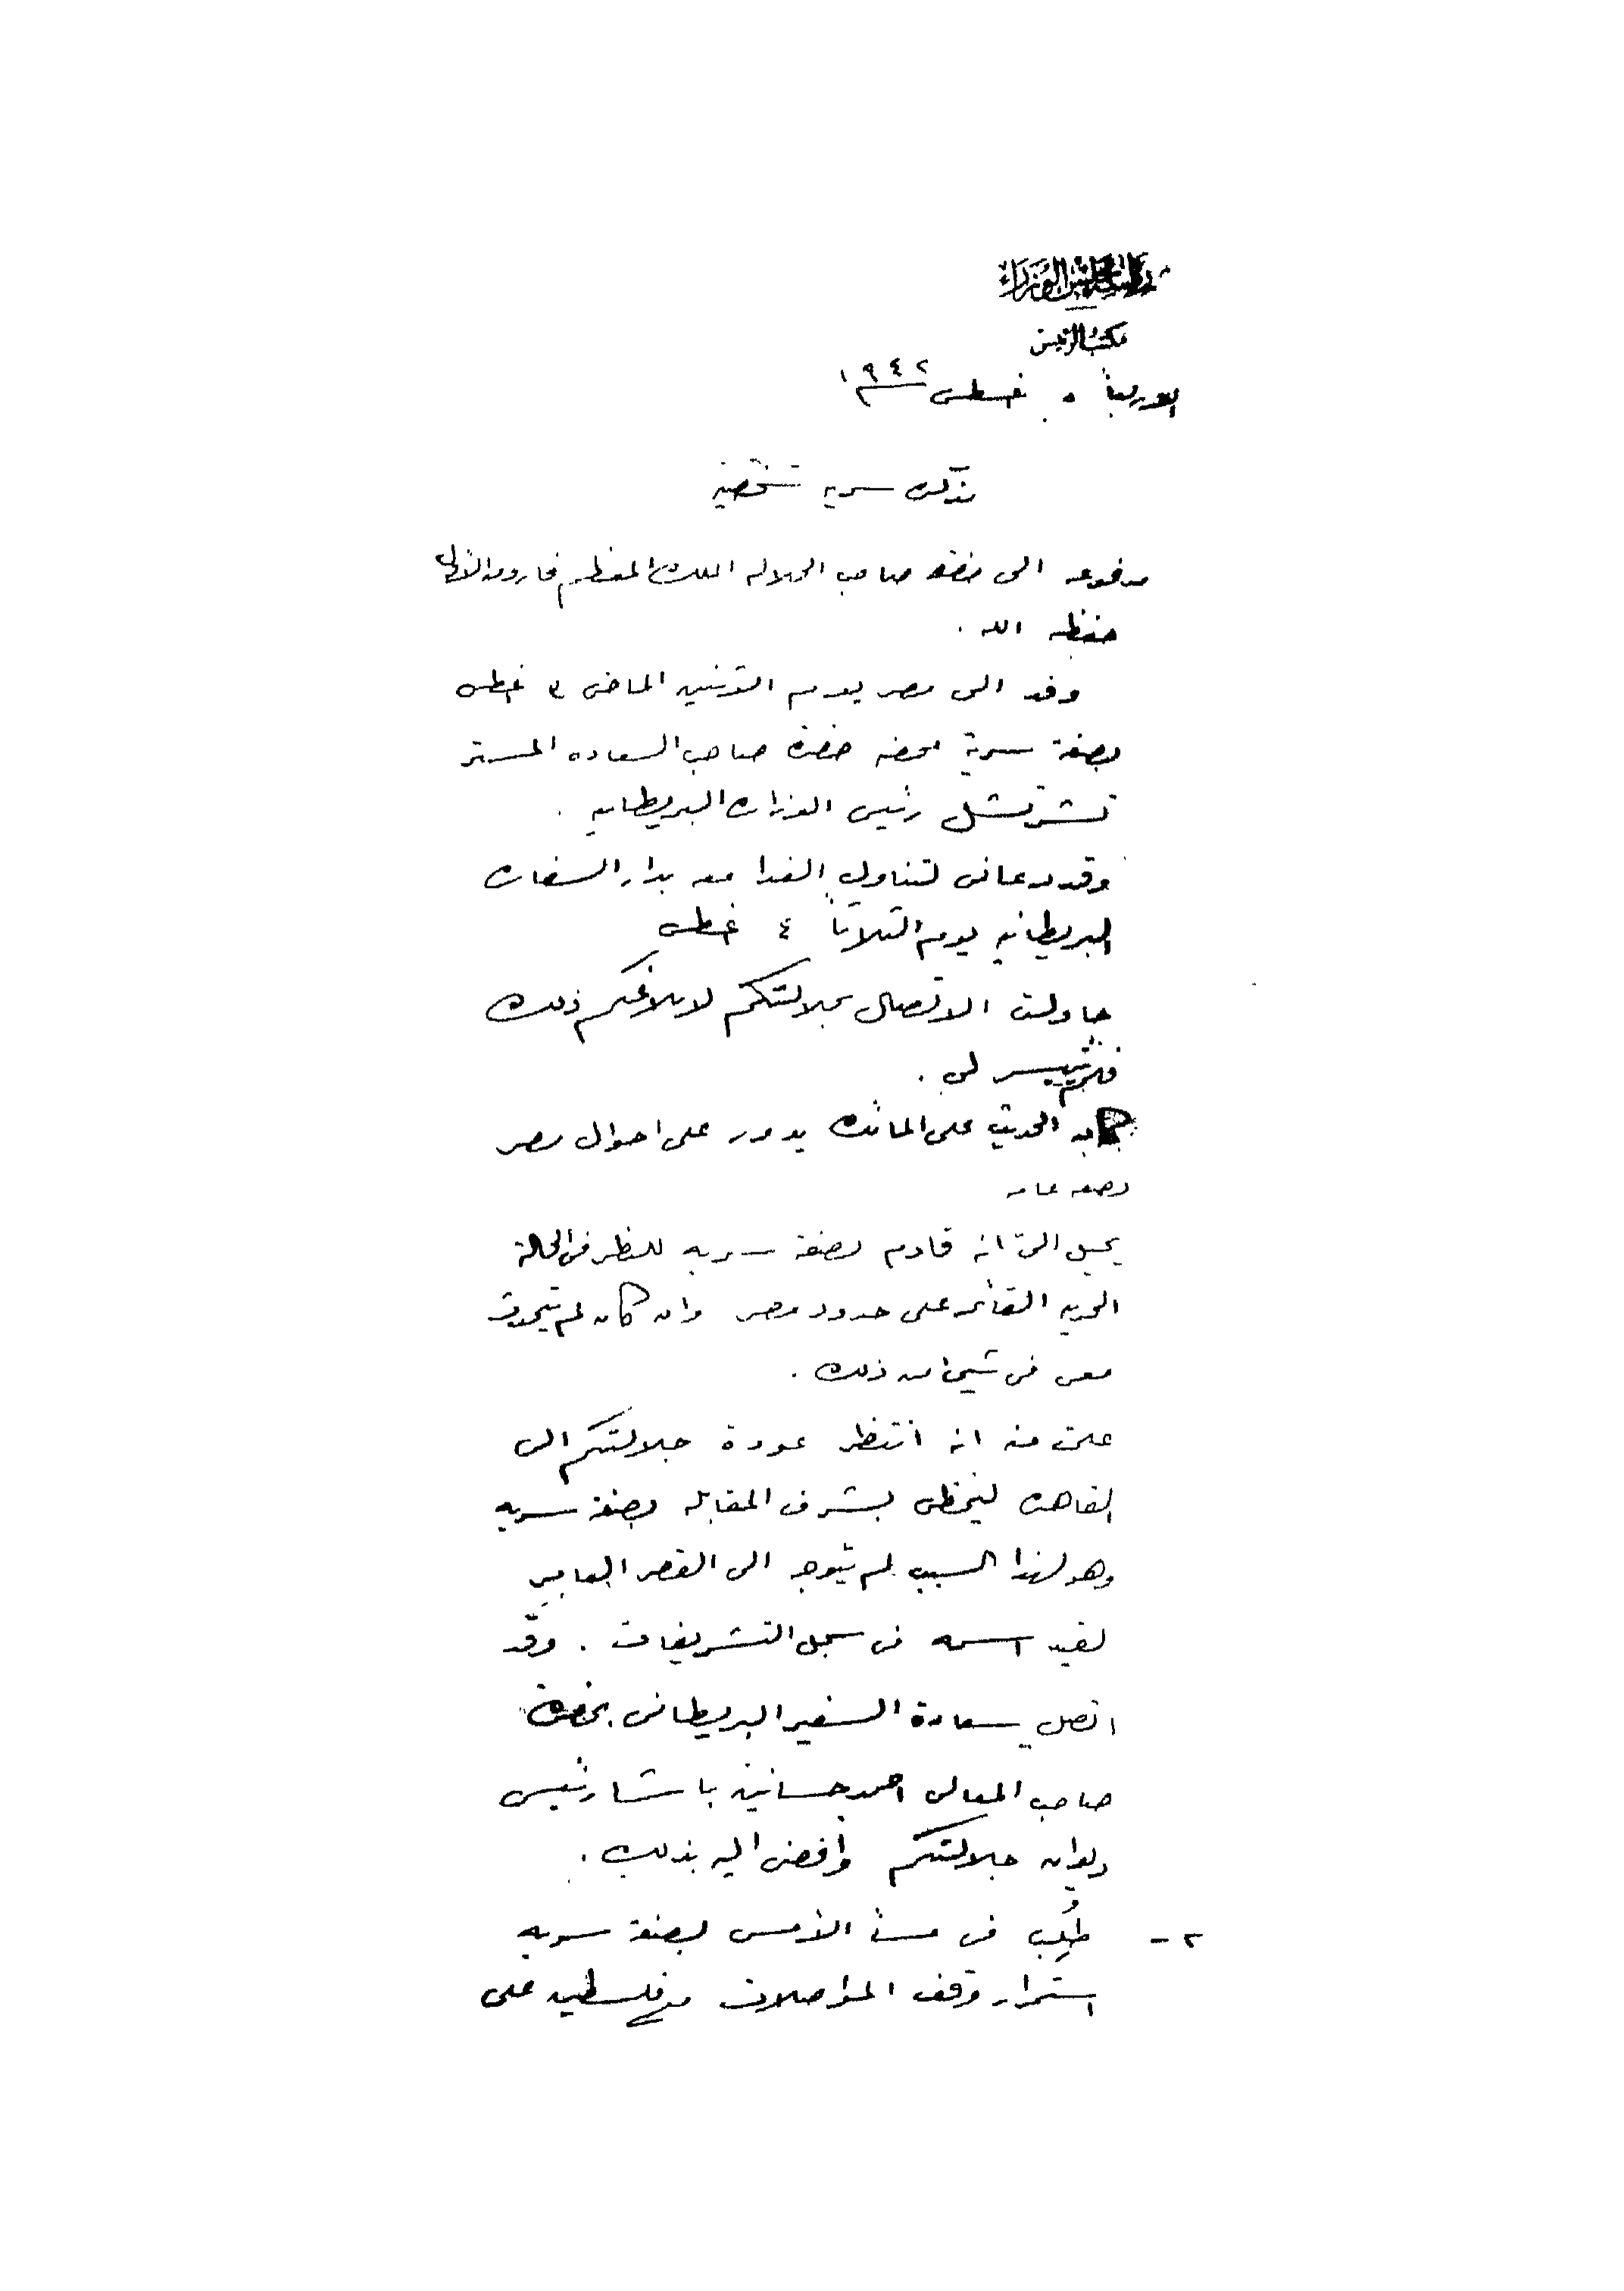 رئاسة مجلس الوزراء
مكتب الرئيس
الاربعاء ٥ غسطس ١٩٤٢
مذكرة سرية شخصية
مرفوعه الى حضرة صاحب الجلاله الملك المعظم فاروق الاول
حفظه الله .
وفد الى مصر يوم الاثنين الماضى ٣ غسطس
بصفة سرية محضه حضرة صاحب السعاده المستر
تشرتشل رئيس الوزارة البريطانيه .
وقد دعانى لتناول الغدا معه بدار السفارة
البريطانيه يوم الثلاثا ٤ غسطس
حاولت الاتصال بجلالتكم لابلاغكم ذلك
فلم يتيسر لى .
كان الحديث على المائدة يدور على احوال مصر
بصفه عامه
يخيل الىّ انه قادم بصفة سريه للنظر فى الحالة
الحربيه القائمه على حدود مصر وان كان لم يتحدث
معى فى شيئ من ذلك .
علمت منه انه انتظر عودة جلالتكم الى
القاهرة ليحظى بشرف المقابله بصفة سريه
وهو لهذا السبب لم يتوجه الى القصر العامر
لقيد اسمه فى سجل التشريفات . وقد
اتصل سعادة السفير البريطانى بحضرة
صاحب المعالى احمد حسانين باشا رئيس
ديوان جلالتكم وأفضى اليه بذلك .
٢ - طُلِب فى مساء الأمس بصفة سريه
استمرار وقف المواصلات مع فلسطين على